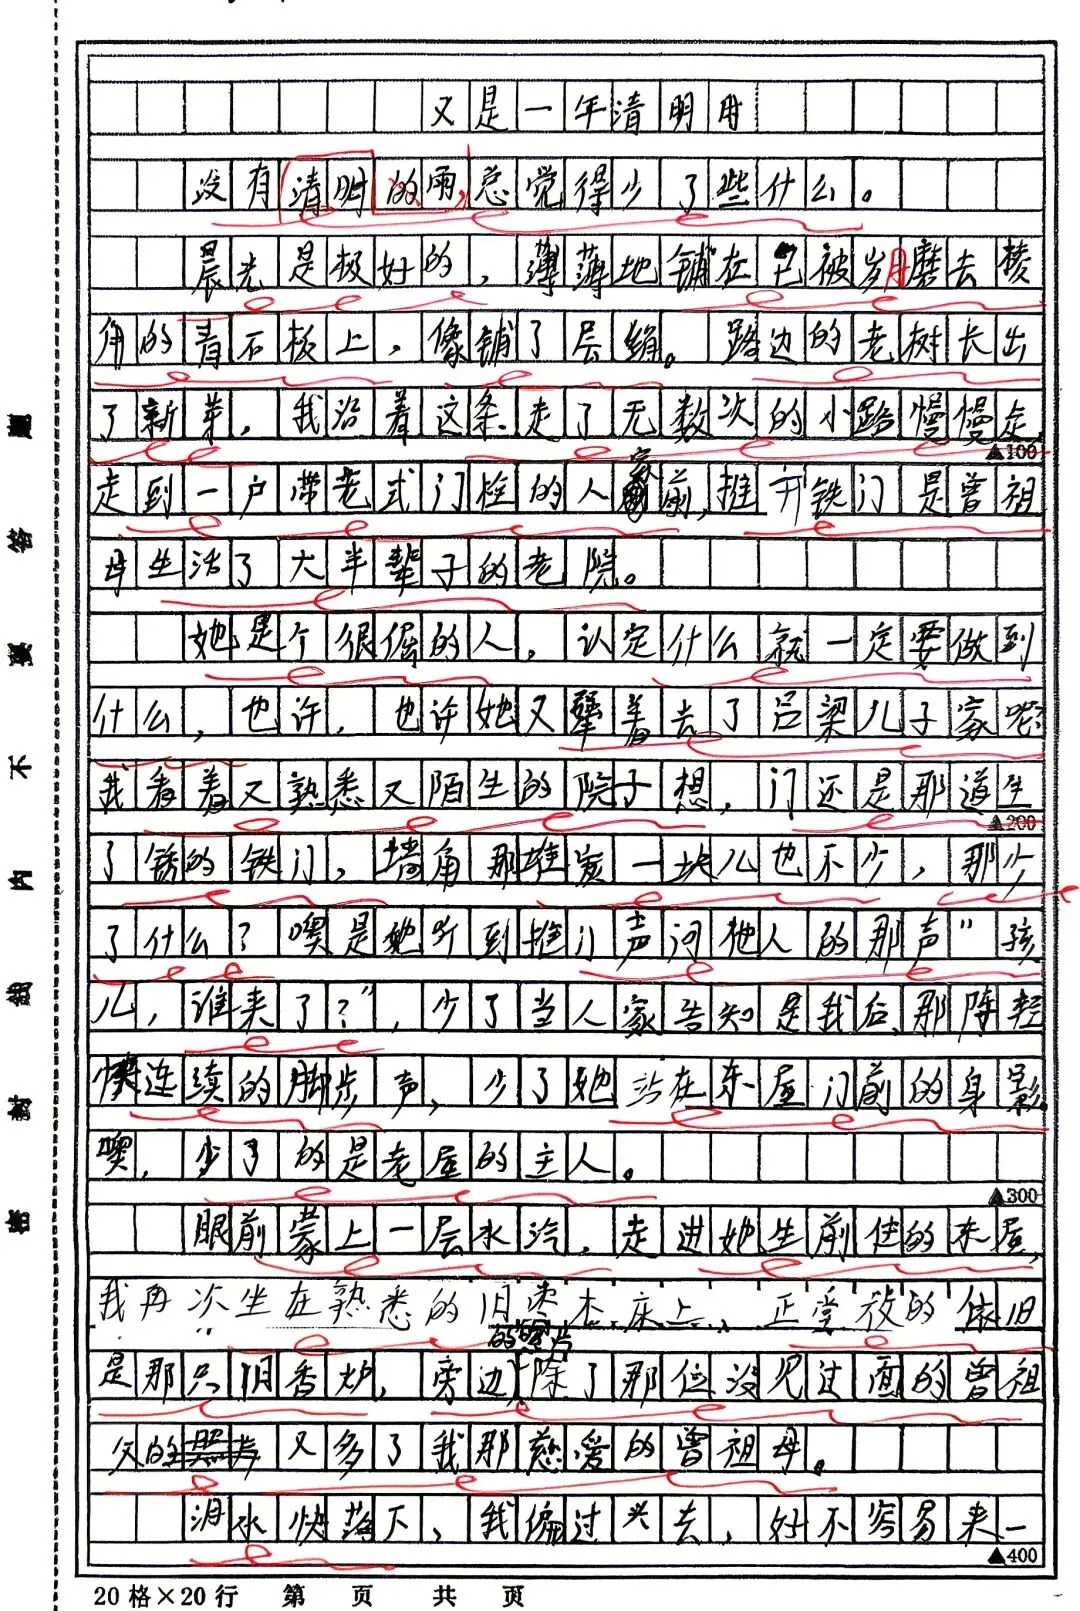 又是一年清明时
没有清明的雨,总觉得少了些什么。
晨光是极好的，薄薄地铺在已被岁月磨去棱
角的青石板上，像铺了层绢。路边的老树长出
了新芽，我沿着这条走了无数次的小路慢慢走，
▲100
走到一户带老式门栓的人家前，推开铁门是曾祖
母生活了大半辈子的老院。
她是个很倔的人，认定什么就一定要做到
什么，也许，也许她又犟着去了吕梁儿子家呢？
我看着又熟悉又陌生的院子想，门还是那道生
▲200
了锈的铁门，墙角那堆炭一块儿也不少，那少
了什么？噢是她听到推门声问他人的那声“孩
儿，谁来了？”，少了当人家告知是我后，那阵轻
快连续的脚步声，少了她站在东屋门前的身影。
噢，少了的是老屋的主人。
▲300
眼前蒙上一层水汽，走进她生前住的东屋，
我再次坐在熟悉的旧木床上，正受放的依旧
是那只旧香炉，旁边的照片除了那位没见过面的曾祖
父的又多了我那慈爱的曾祖母。
泪水快落下，我偏过头去，好不容易来一
▲400
20格×20行 第 页 共 页
密 封 线 内 不 要 答 题